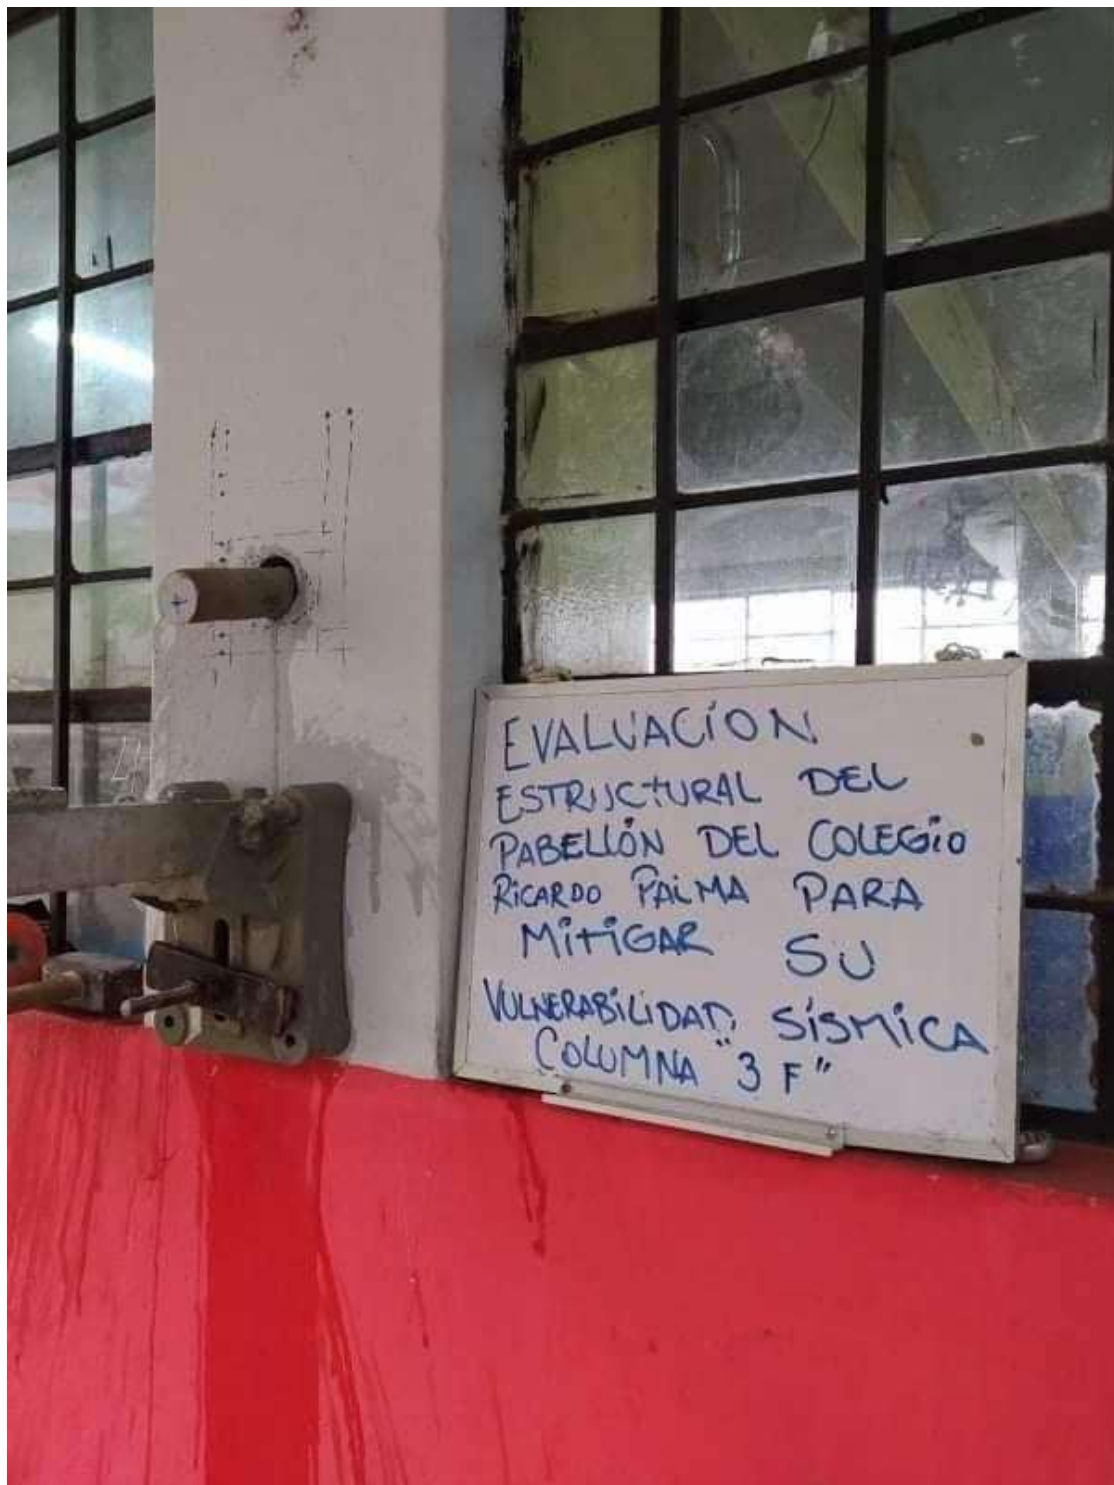 EVALUACIÓN
ESTRUCTURAL DEL
PABELLÓN DEL COLEGIO
RICARDO PALMA PARA
MITIGAR SU
VULNERABILIDAD SÍSMICA
COLUMNA "3 F"